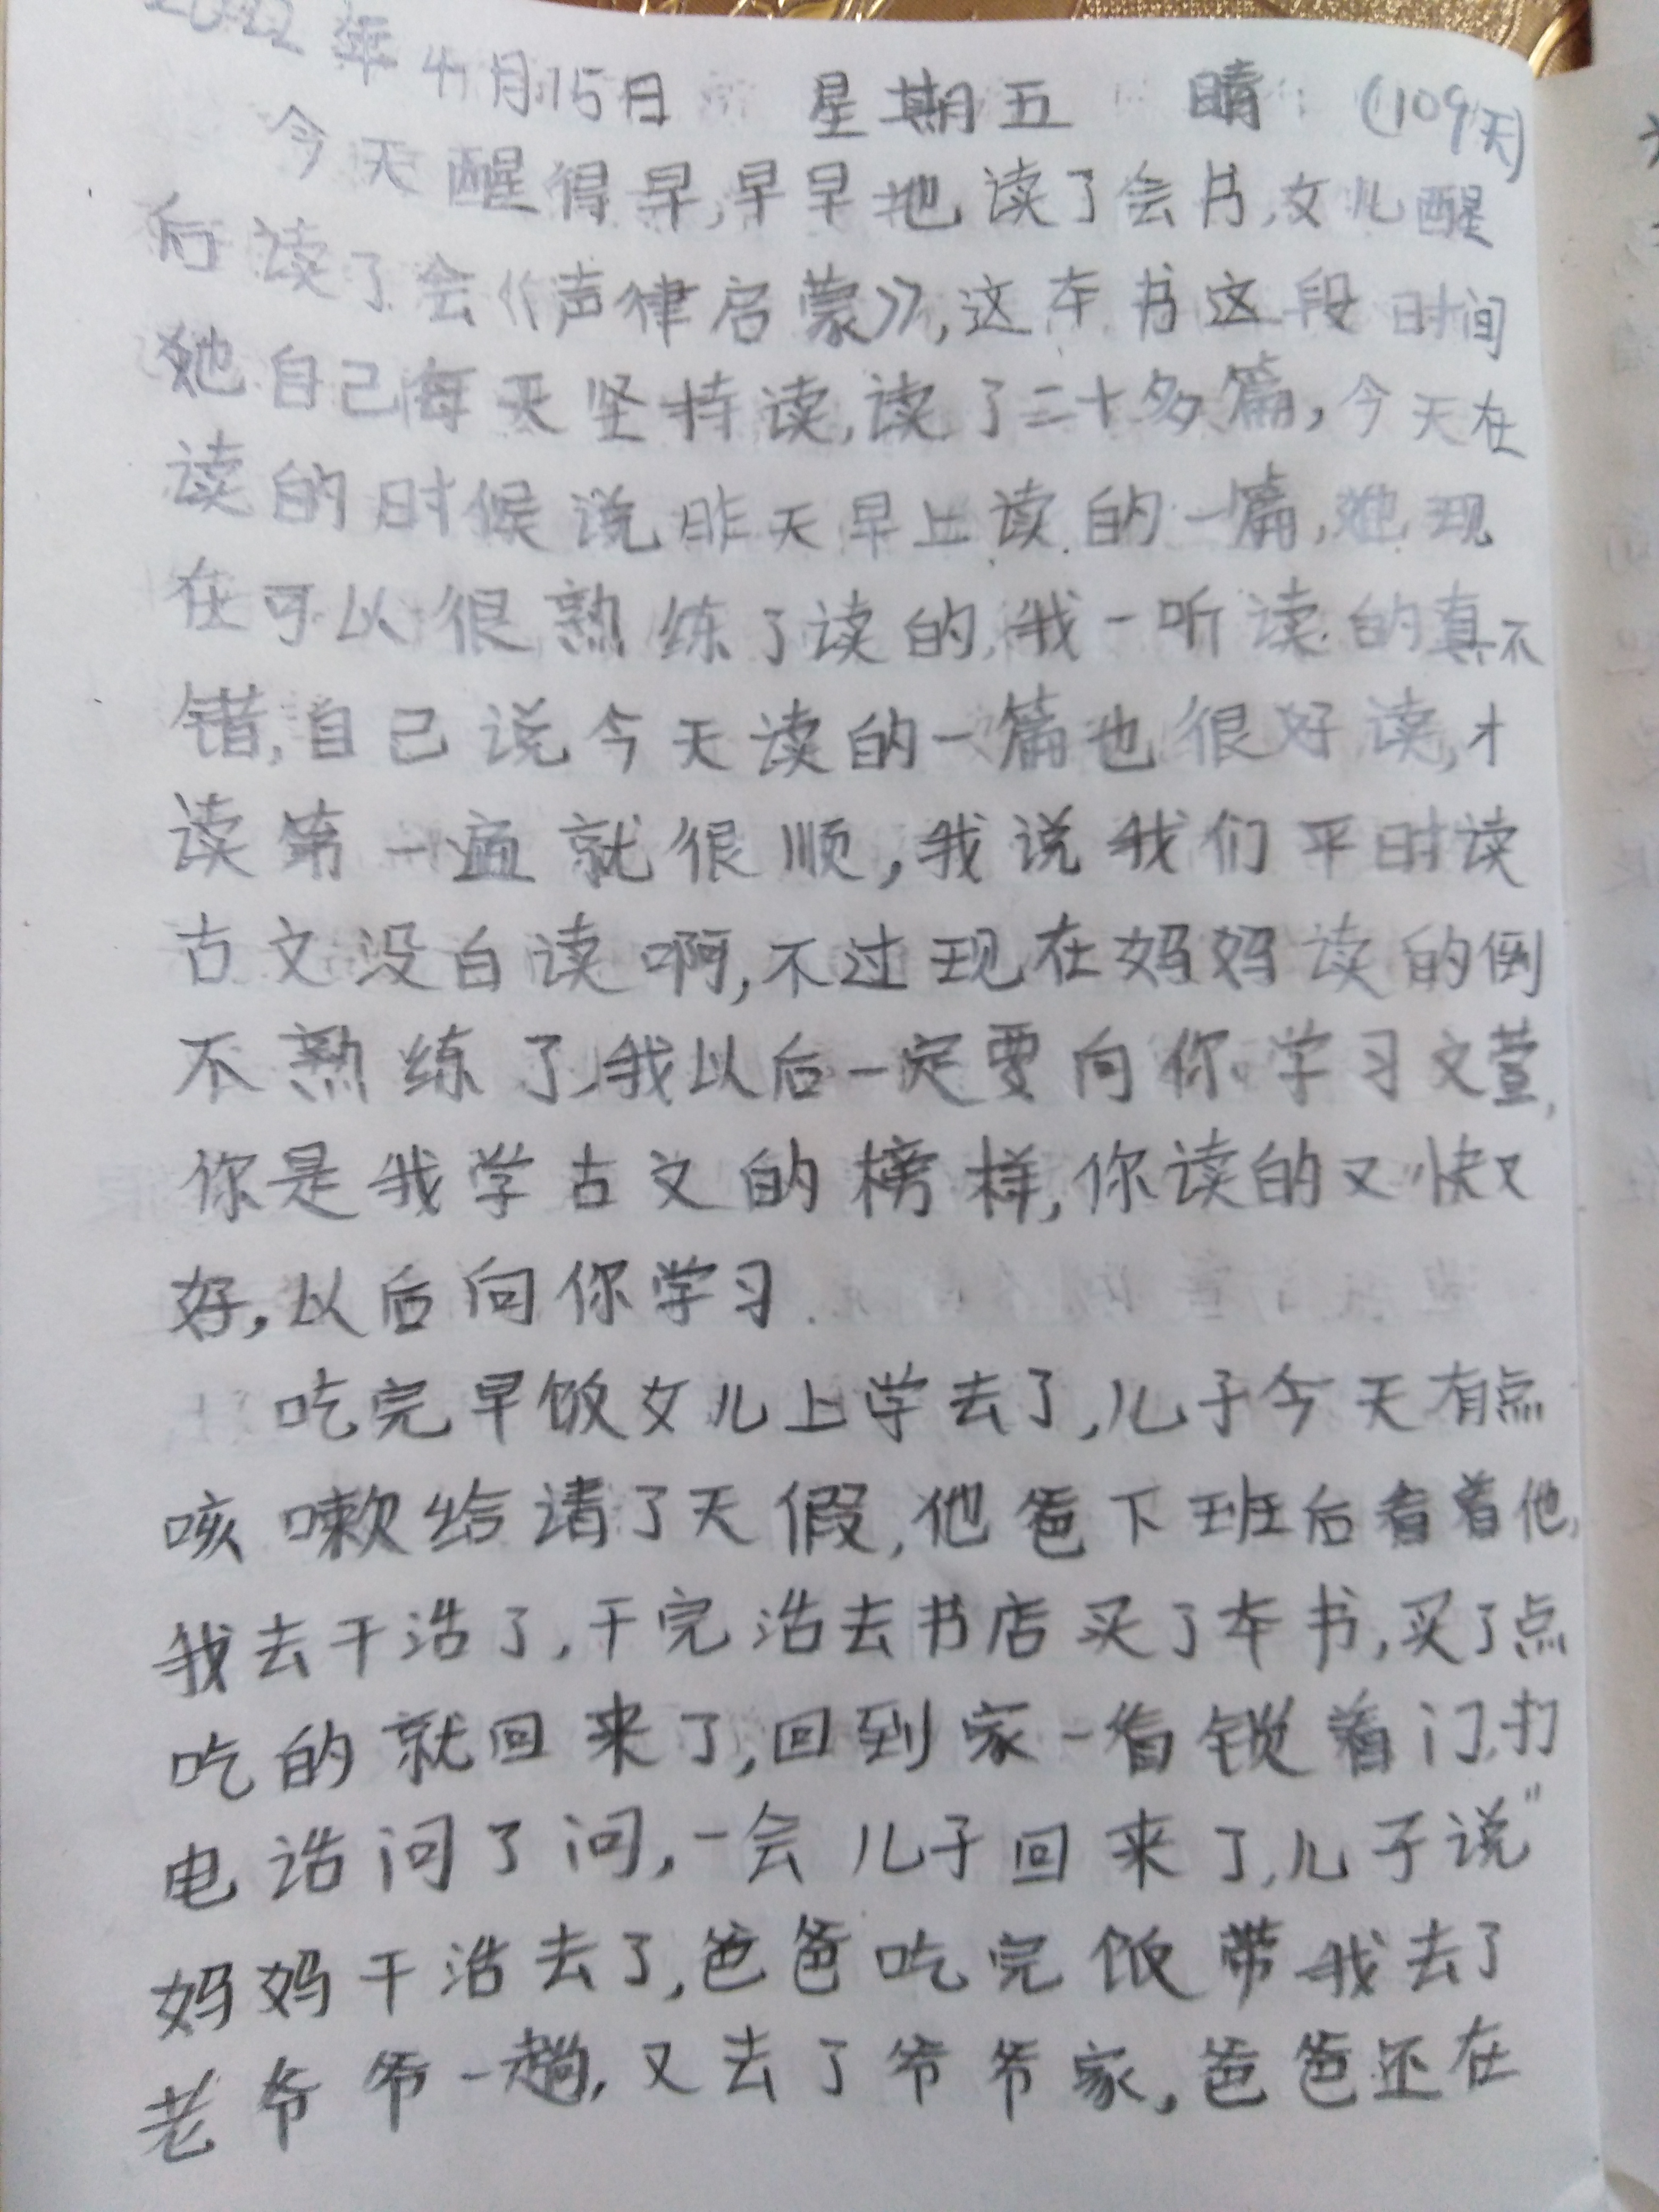 2022年4月15日 星期五 晴 (109天)
今天醒得早,早早地读了会书,女儿醒
后读了会《声律启蒙》,这本书这段时间
她自己每天坚持读,读了二十多篇,今天在
读的时候说昨天早上读的一篇,她现
在可以很熟练了读的,我一听读的真不
错,自己说今天读的一篇也很好读,才
读第一遍就很顺,我说我们平时读
古文没白读啊,不过现在妈妈读的倒
不熟练了,我以后一定要向你学习文萱,
你是我学古文的榜样,你读的又快又
好,以后向你学习.
吃完早饭女儿上学去了,儿子今天有点
咳嗽给请了天假,他爸下班后看着他,
我去干活了,干完活去书店买了本书,买了点
吃的就回来了,回到家一看锁着门,打
电话问了问,一会儿子回来了,儿子说"
妈妈干活去了,爸爸吃完饭带我去了
老爷爷一趟,又去了爷爷家,爸爸还在